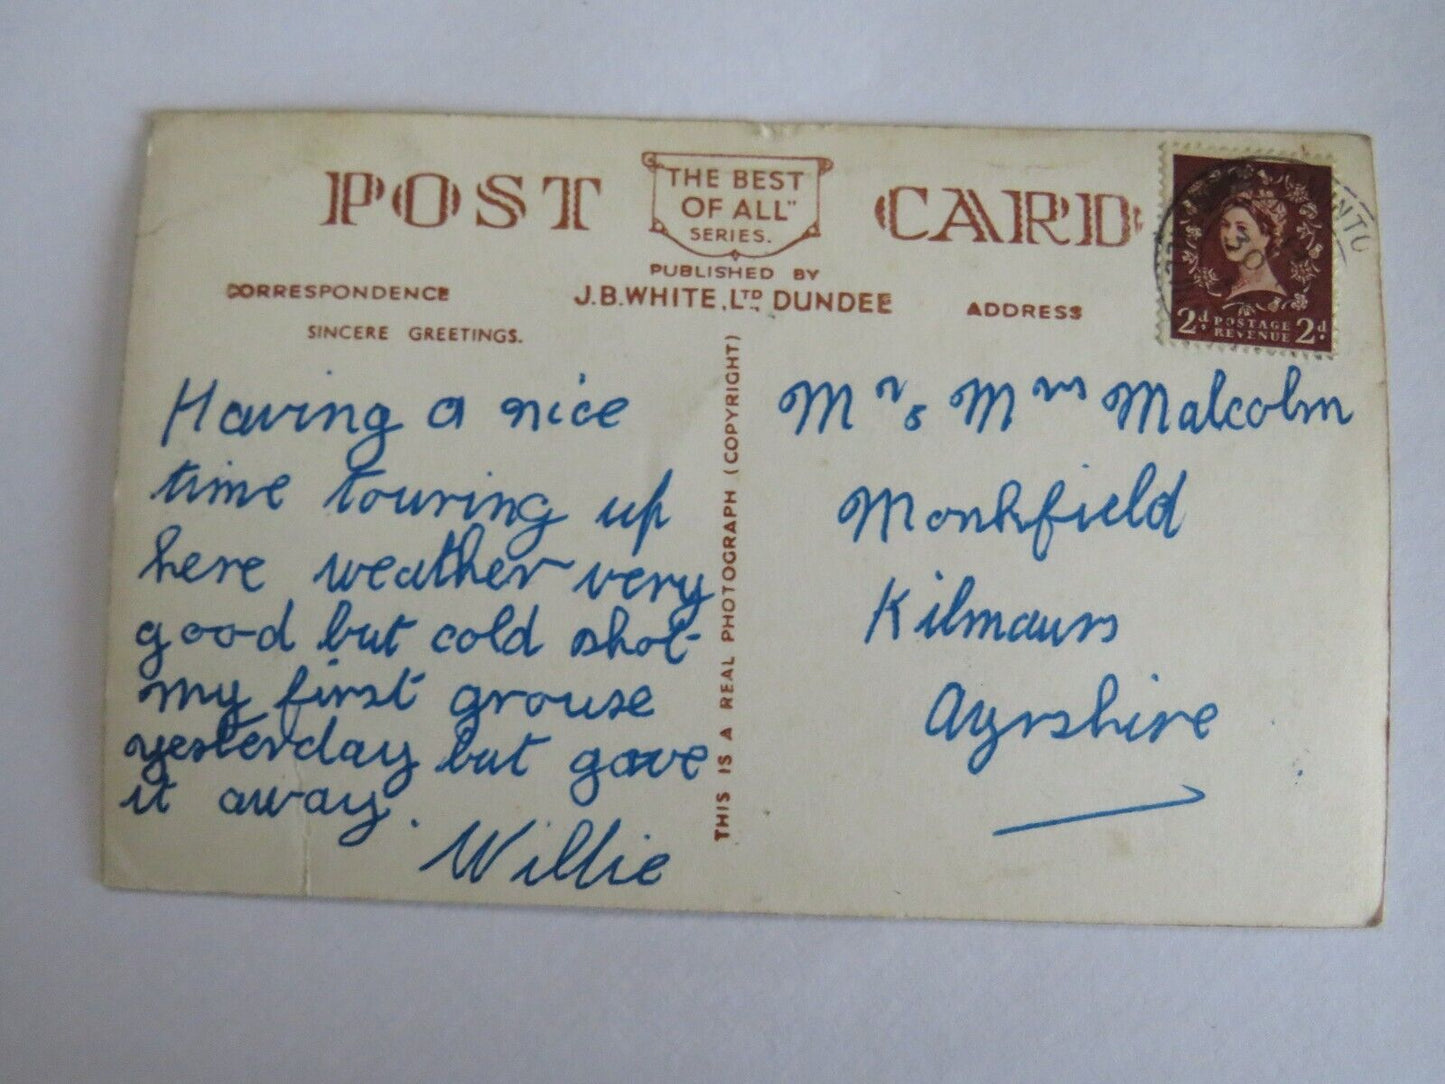 POST CARD
"THE BEST
OF ALL"
SERIES.
PUBLISHED BY
J.B.WHITE, LTD. DUNDEE
CORRESPONDENCE
ADDRESS
SINCERE GREETINGS.
2d. POSTAGE REVENUE 2d.
Having a nice
time touring up
here weather very
good but cold shot
my first grouse
yesterday but gave
it away.
Willie
THIS IS A REAL PHOTOGRAPH (COPYRIGHT)
Mr & Mrs Malcolm
Monkfield
Kilmaurs
Ayrshire